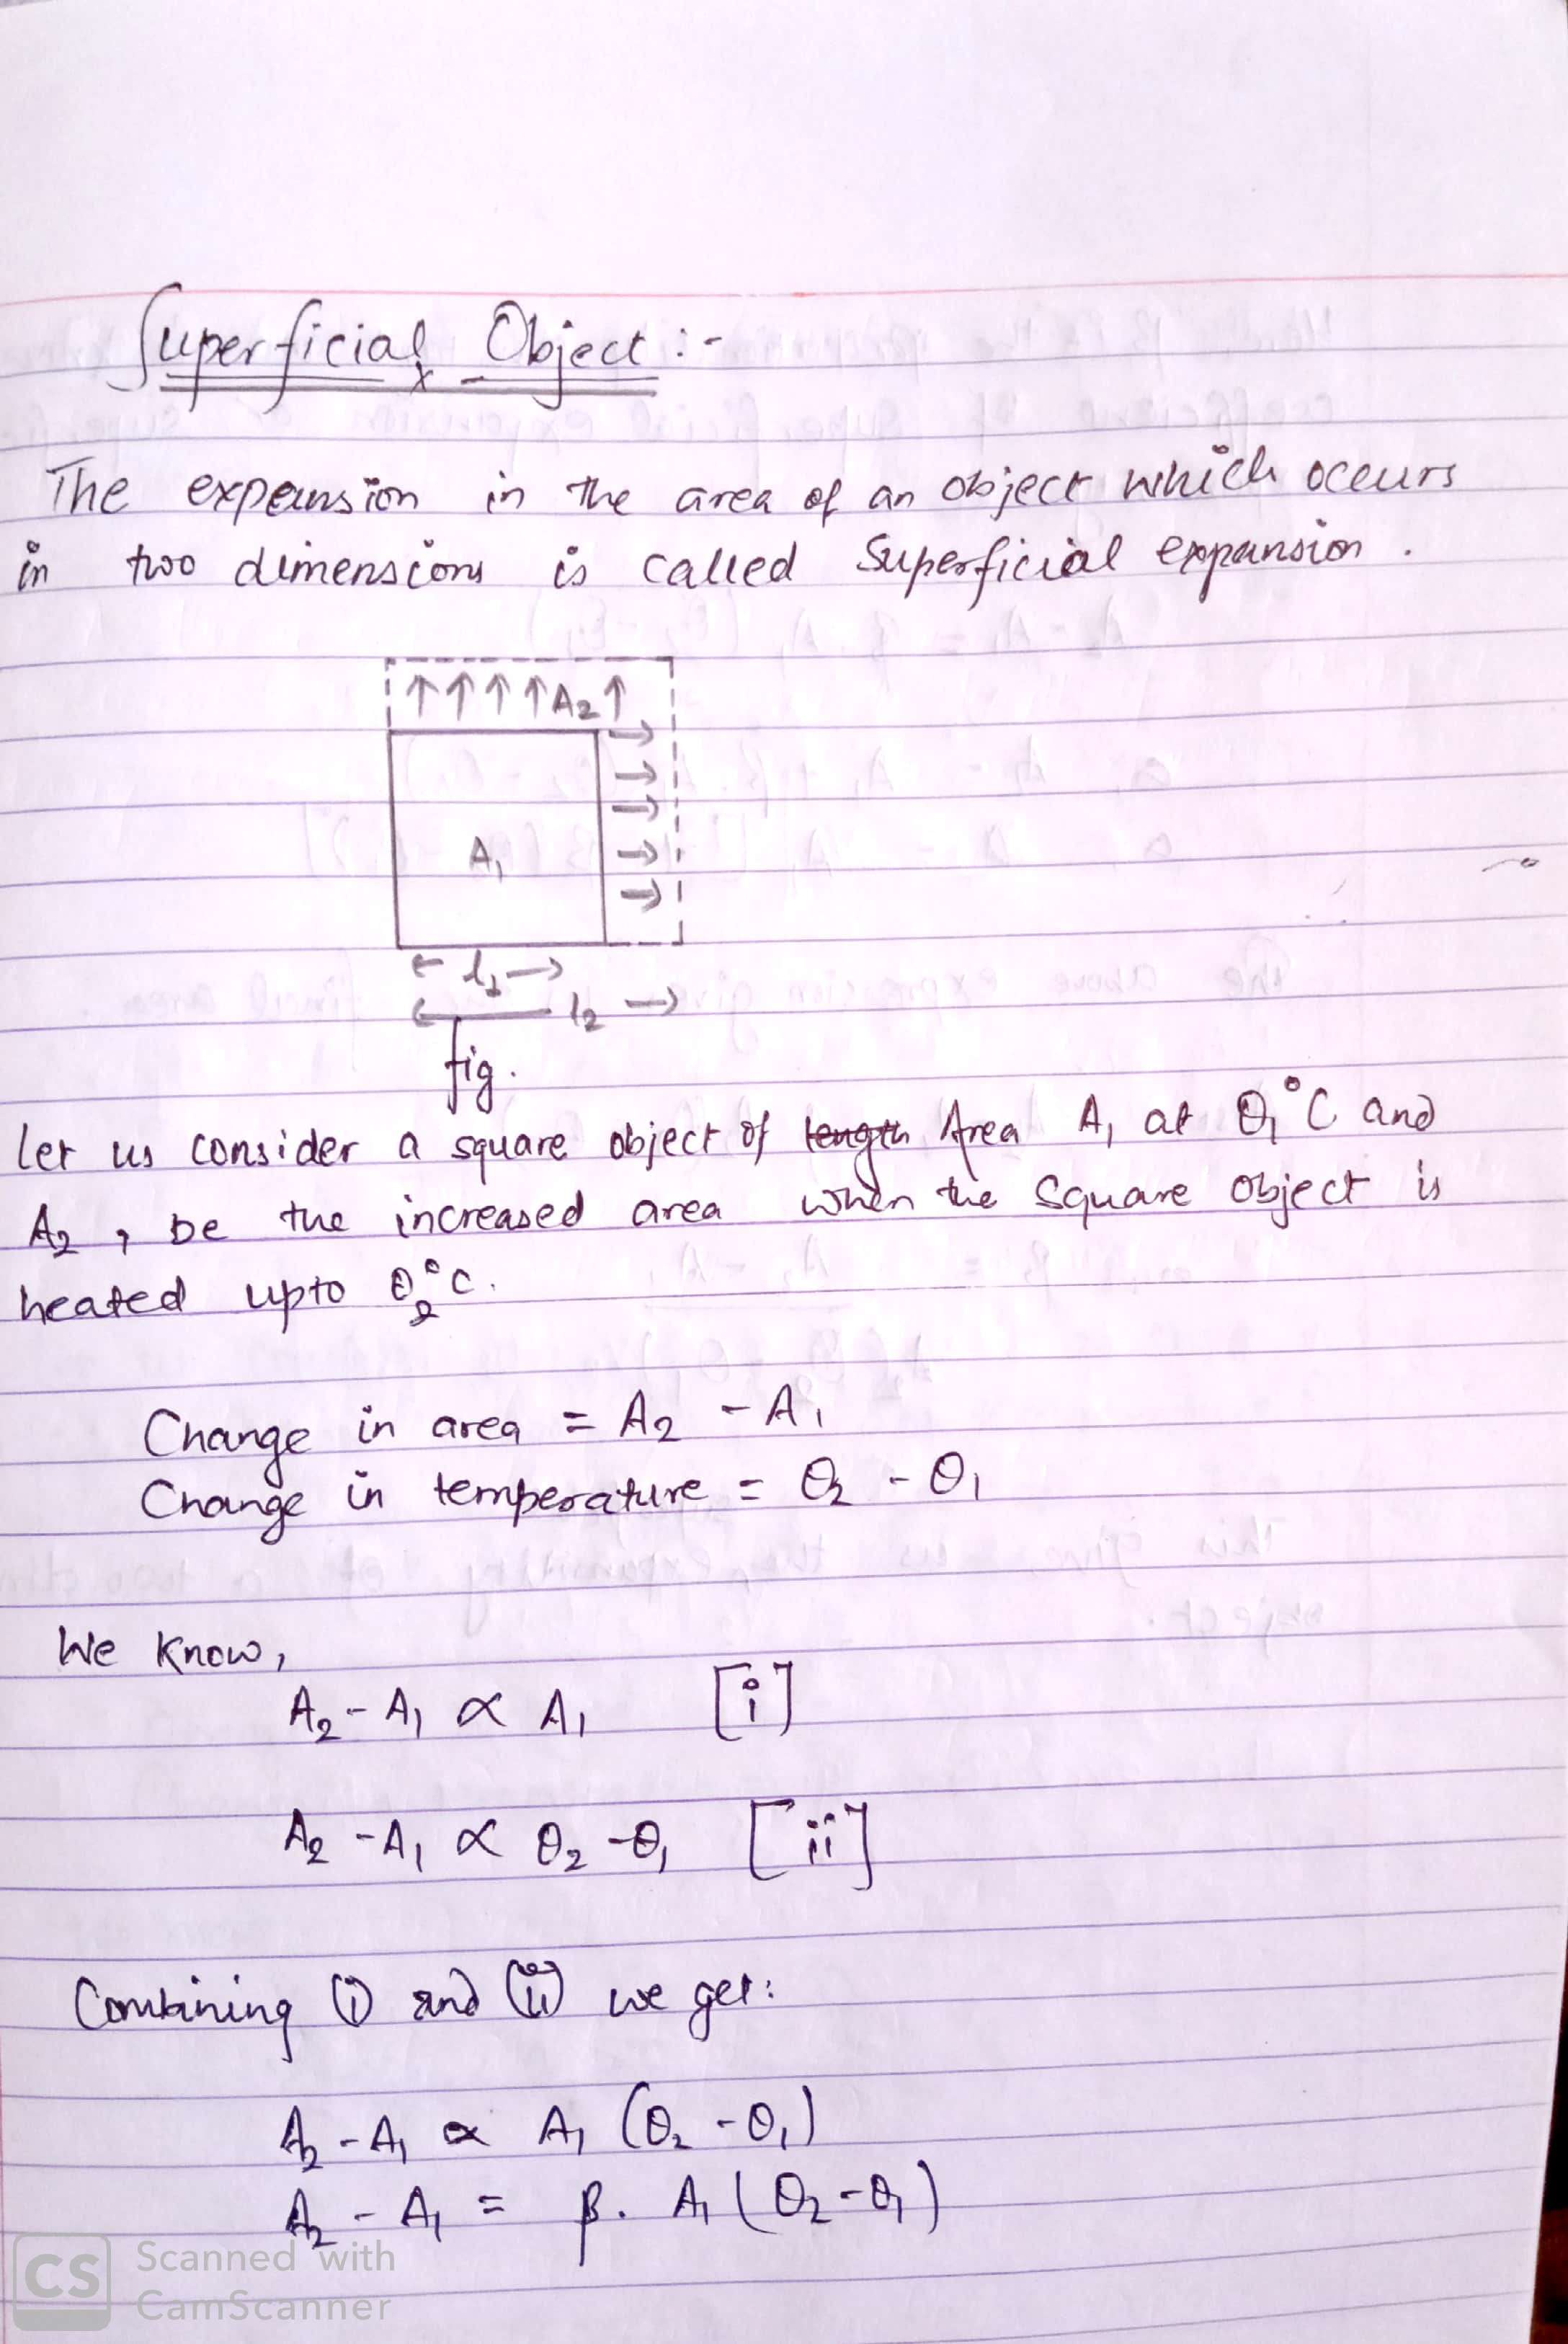 Superficial Object :-
The expansion in the area of an object which occurs
in two dimensions is called Superficial expansion.
A2
A1
l1
l2
fig.
Let us consider a square object of length Area A1 at θ1°C and
A2, be the increased area when the square object is
heated upto θ2°C.
Change in area = A2 - A1
Change in temperature = θ2 - θ1
We know,
A2 - A1 ∝ A1 [i]
A2 - A1 ∝ θ2 - θ1 [ii]
Combining (i) and (ii) we get:
A2 - A1 ∝ A1 (θ2 - θ1)
A2 - A1 = β. A1 (θ2 - θ1)
CS Scanned with
CamScanner